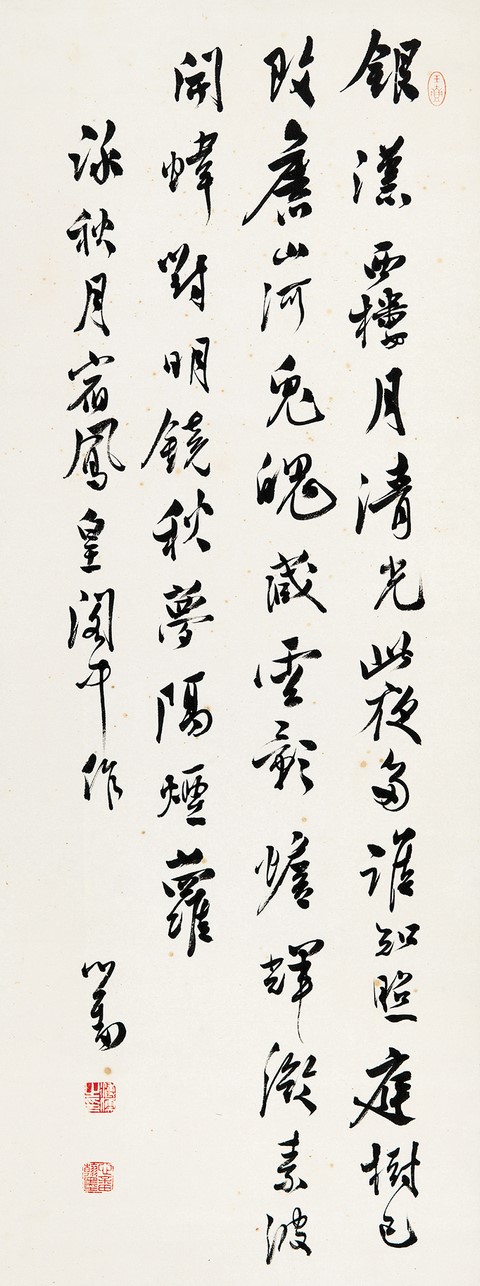 銀漢西樓月清光此夜多誰知照庭樹已
改舊山河兔魄藏雲影蟾輝素波
開幃對明鏡秋夢隔煙蘿
詠秋月宿鳳皇閣中作
心畬